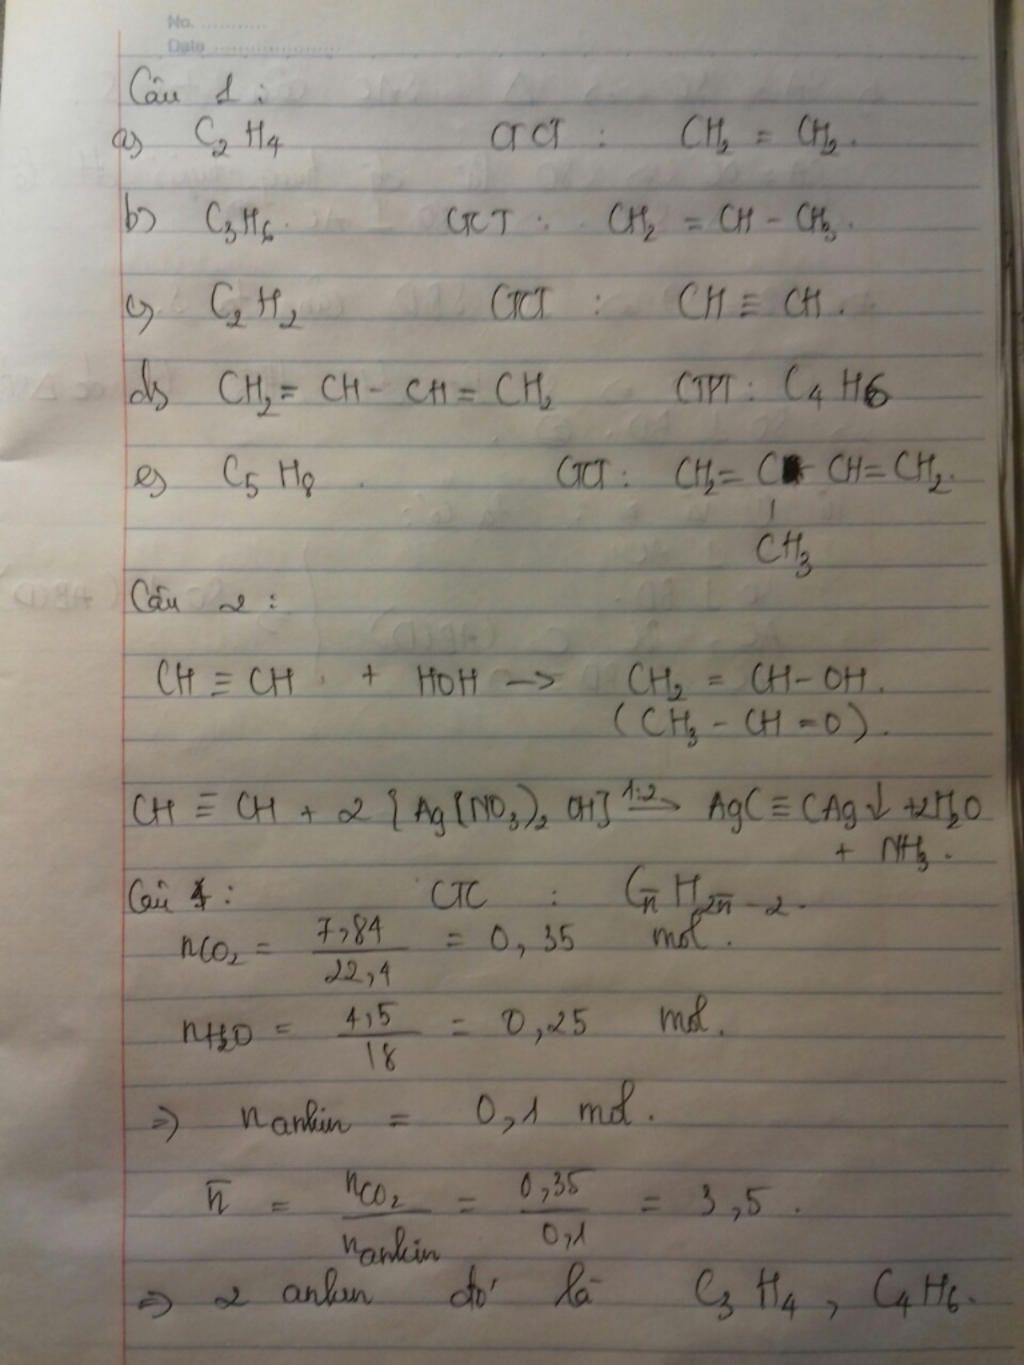 No. ............
Date ........................
Câu 1 :
a) C₂H₄ CTCT : CH₂ = CH₂.
b) C₃H₆. CTCT : CH₂ = CH - CH₃.
c) C₂H₂ CTCT : CH ≡ CH.
d) CH₂ = CH - CH = CH₂ CTPT : C₄H₆
e) C₅H₈ . CTCT : CH₂ = C - CH = CH₂.
|
CH₃
Câu 2 :
CH ≡ CH + HOH -> CH₂ = CH - OH.
(CH₃ - CH = O).
CH ≡ CH + 2 [Ag[NO₃)₂ OH] 1:2 -> AgC ≡ CAg↓ + 2H₂O
+ NH₃.
Câu 4 : CTC : Cn̄H2n̄-2.
nCO₂ = 7,84 / 22,4 = 0,35 mol.
nH₂O = 4,5 / 18 = 0,25 mol.
=> n ankin = 0,1 mol.
n̄ = nCO₂ / n ankin = 0,35 / 0,1 = 3,5.
=> 2 ankin đó là C₃H₄, C₄H₆.